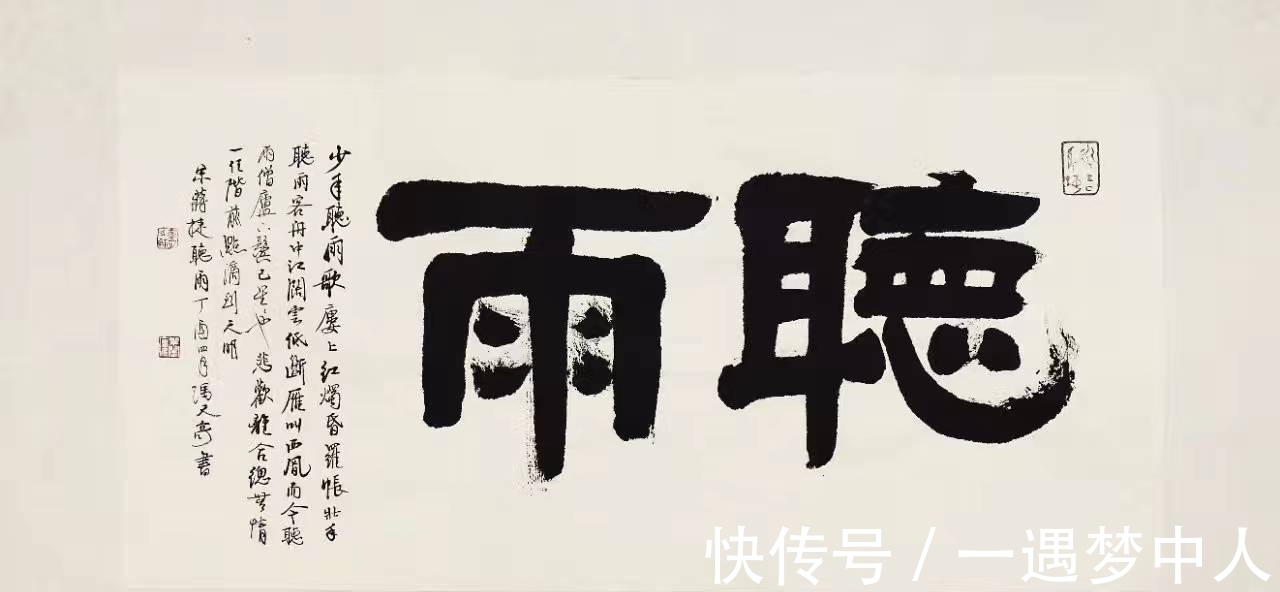 聽雨
少年聽雨歌廔上紅燭昏羅帳壯年
聽雨客舟中江闊雲低斷雁叫西風而今聽
雨僧廬下鬢已星〻也悲歡離合總無情
一任階前點滴到天明
宋蔣捷聽雨丁酉四月馮書
快传号 / 一遇梦中人